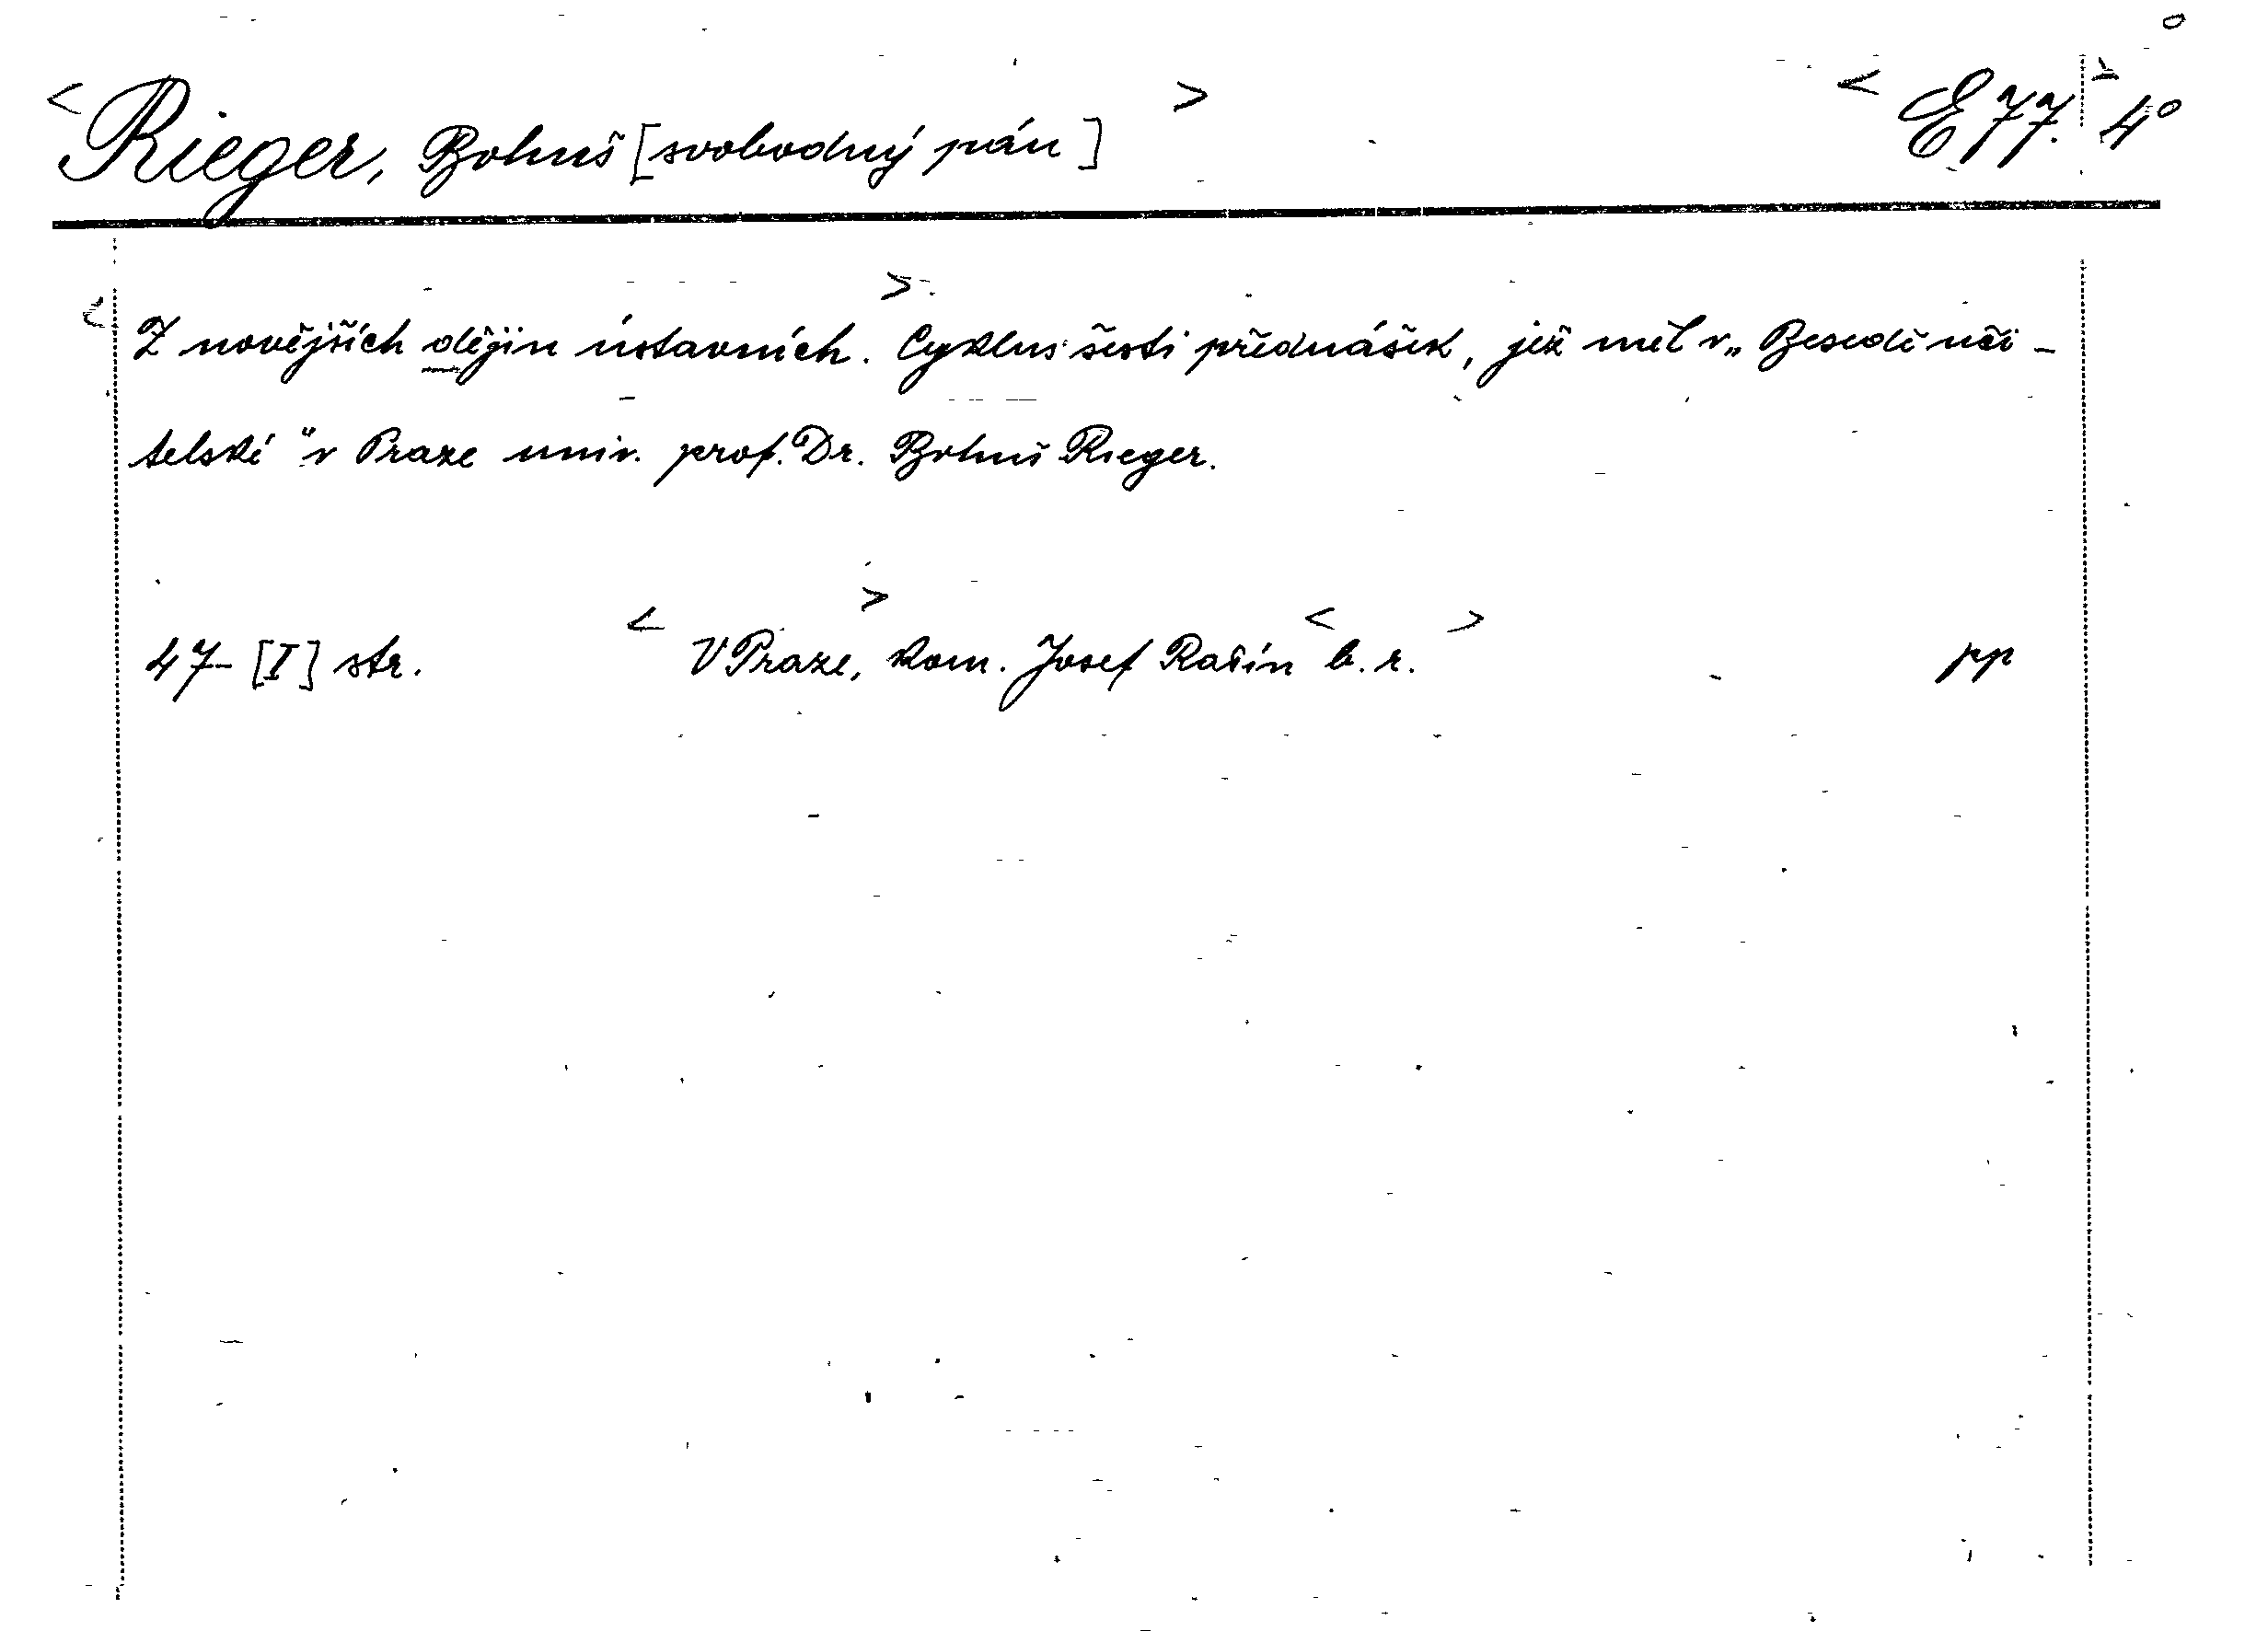 <Rieger, Bohuš [svobodný pán]> <E 77.> 4°
<Z novějších dějin ústavních.> Cyklus šesti přednášek, jež měl v „Besedě uči-
telské" v Praze univ. prof. Dr. Bohuš Rieger.
47-[I] str. <V Praze,> kom. Josef Rašín <b.r.> pp